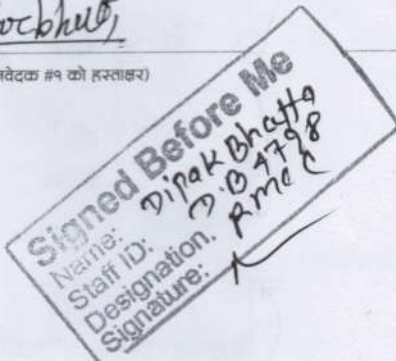 निवेदक #१ को हस्ताक्षर)
Signed Before Me
Name: Dipak Bhatta
Staff ID: D.B 4798
Designation.
Signature: